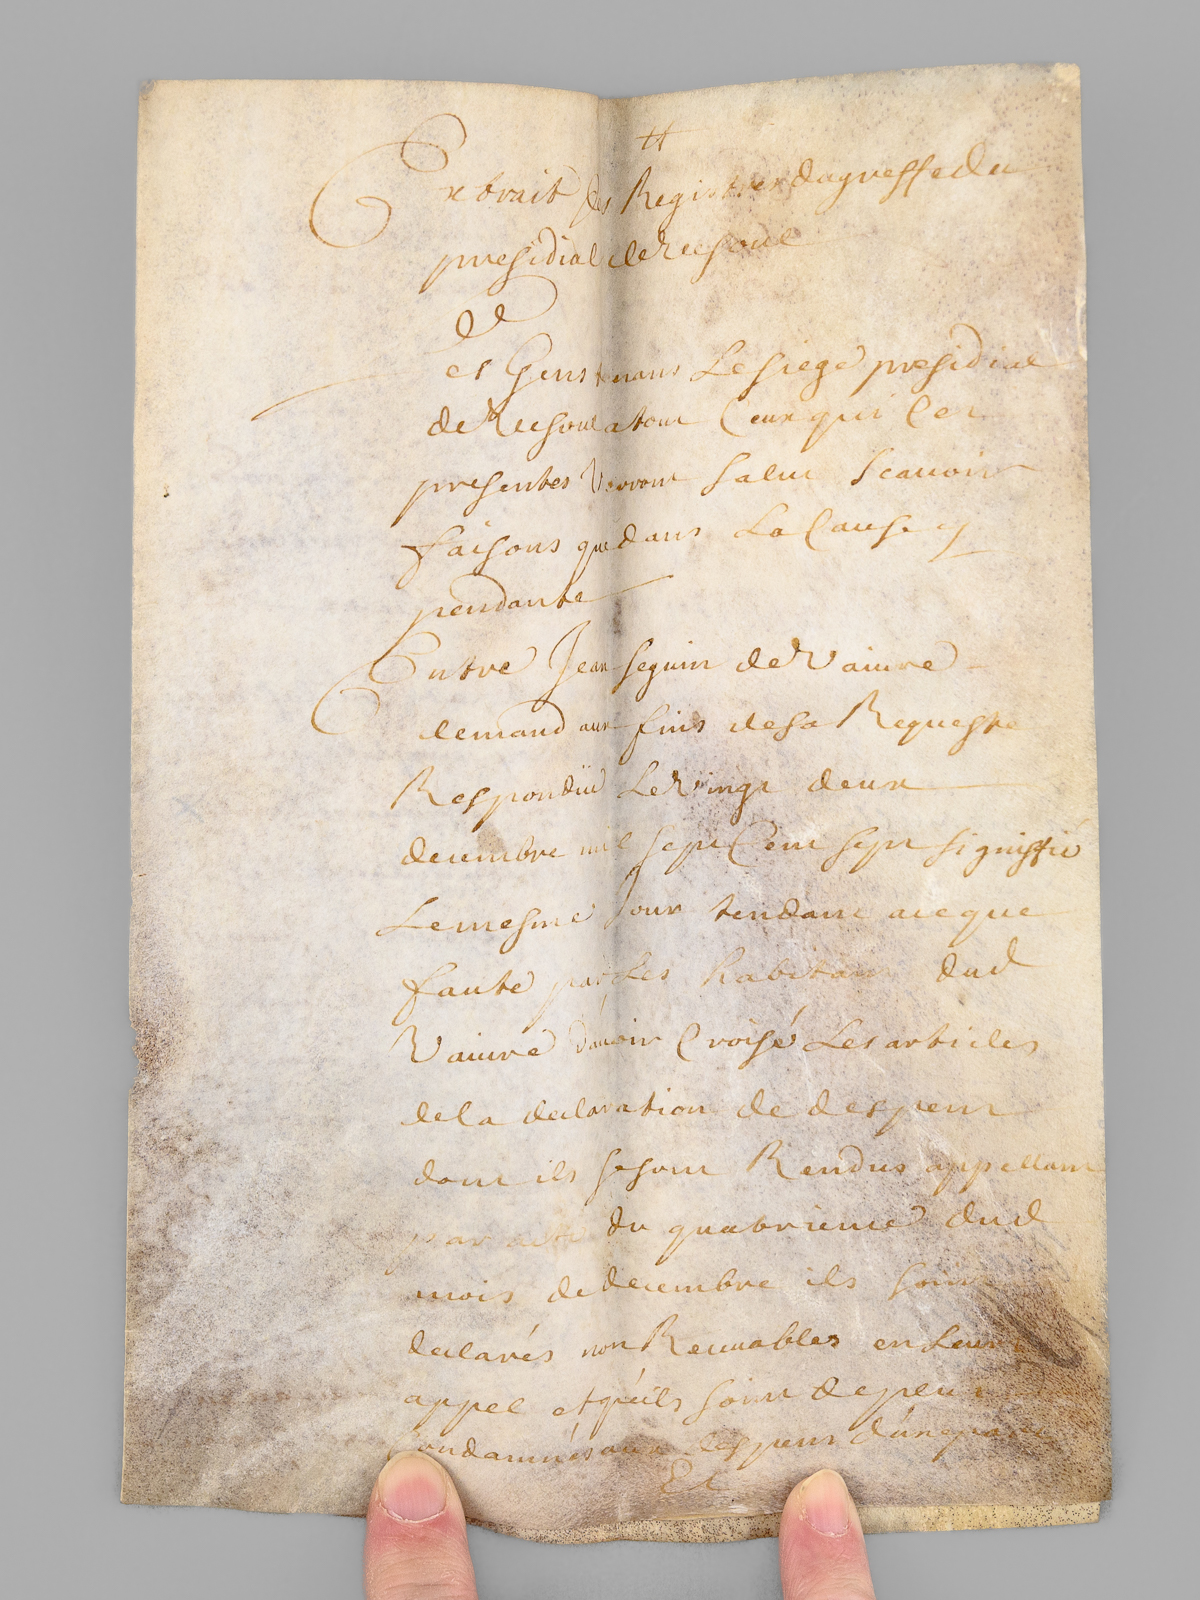 tt
Extrait des Registres du greffe du
presidial de Vesoul
Les Gens tenans Le siege presidial
de Vesoul a tous Ceux qui Ces
presentes Verront salut scauoir
faisons que dans La Cause y
pendante
Entre Jean seguin de Vaiure
demand aux fins de sa Requeste
Respondüe Le Vingt deux
decembre mil sept Cent sept signiffié
Le mesme Jour tendant a ce que
faute par Les habitans dud
Vaiure d'auoir Croisé Les articles
de la declaration de despens
dont ils se sont Rendus appellant
par acte du quatrieme dud
mois de decembre ils soient
declarés non Receuables en Leur
appel et qu'ils soient
Condamnés aux despens d'une part
Et